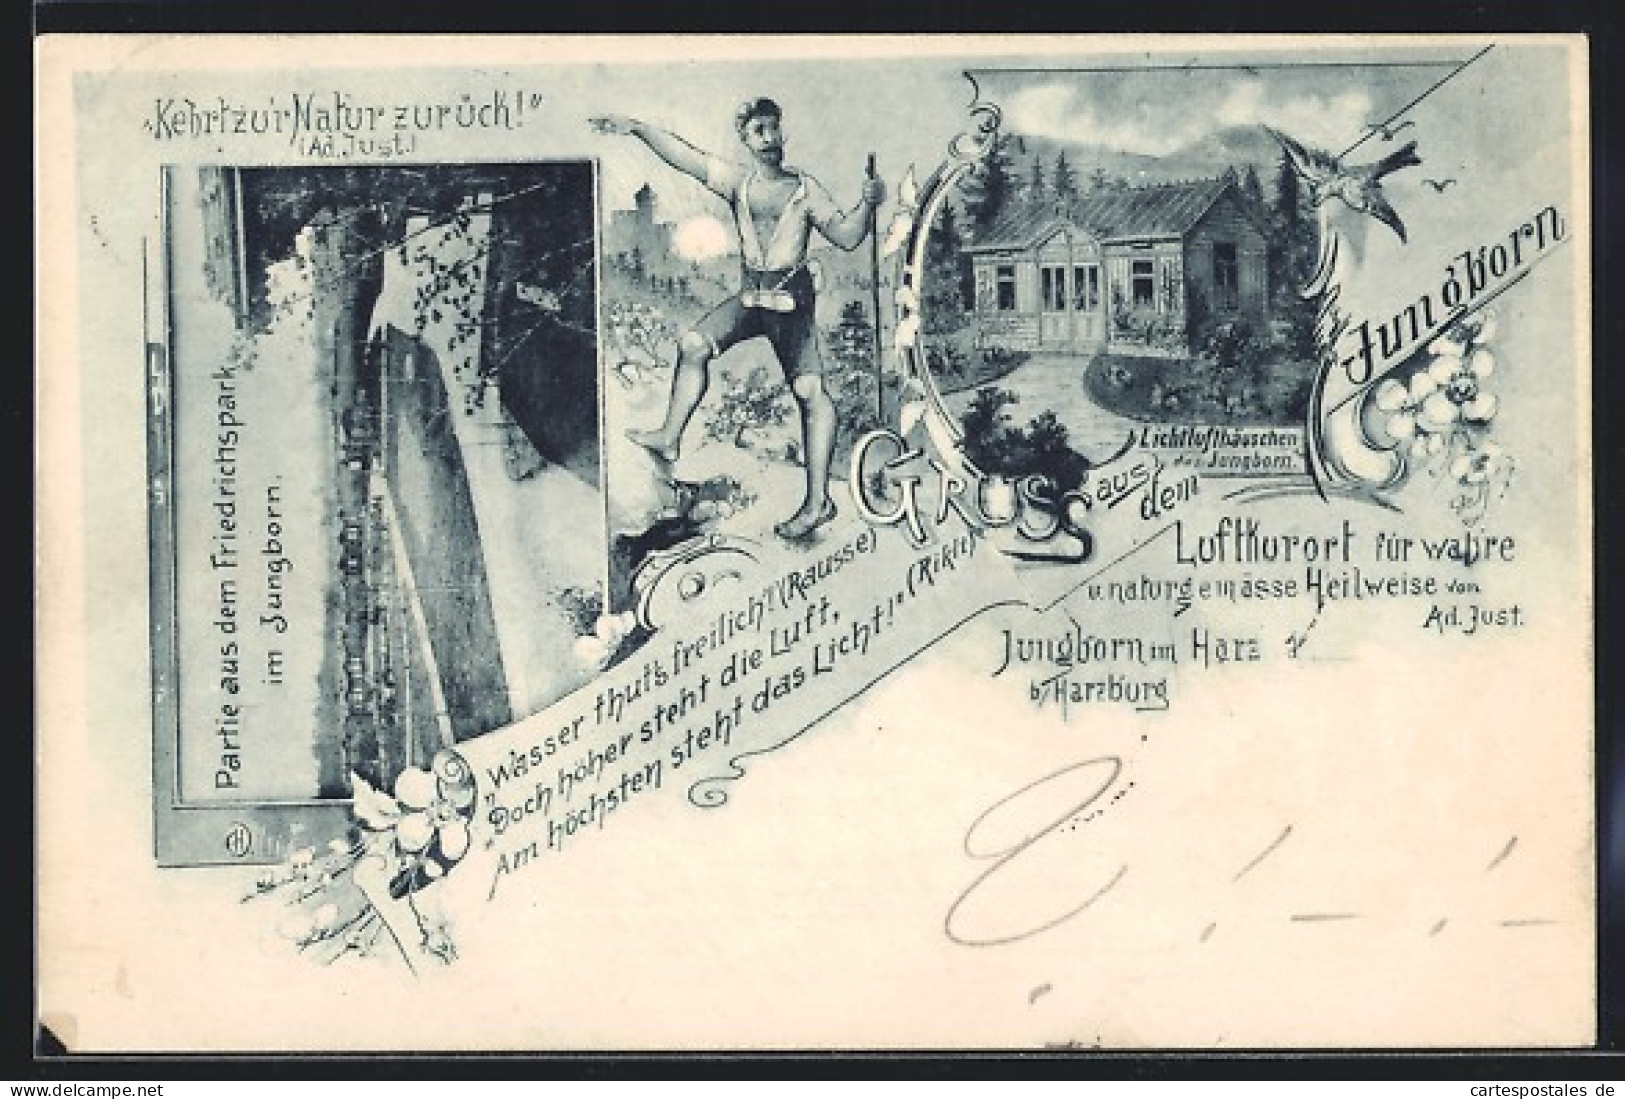 „Kehrt zur Natur zurück!“
(Ad. Just.)
Partie aus dem Friedrichspark
im Jungborn.
Gruss aus dem Jungborn
Lichtlufthäuschen
des Jungborn.
Luftkurort für wahre
u. naturgemässe Heilweise von
Ad. Just.
Jungborn im Harz
b/Harzburg
„Wasser thut's freilich“! (Rausse)
„Doch höher steht die Luft,
Am höchsten steht das Licht!“ (Rikli)
CH
cartespostales de